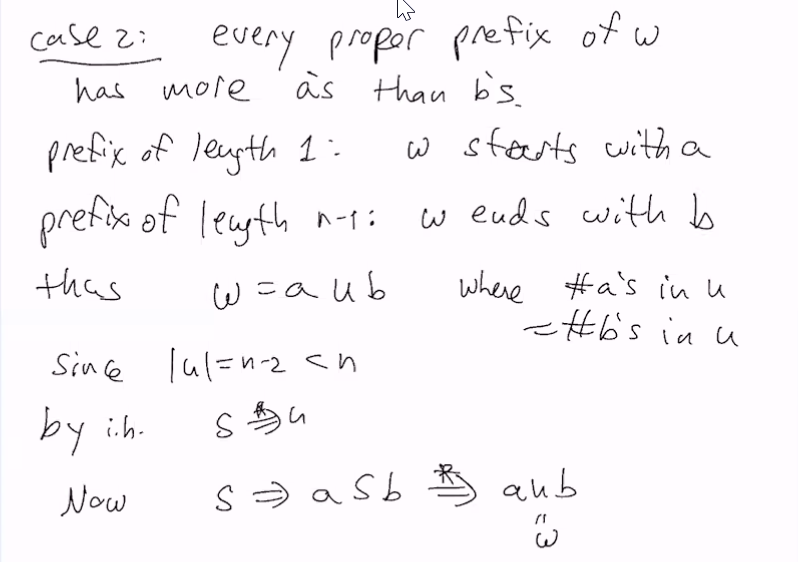 case 2: every proper prefix of w
has more a's than b's.
prefix of length 1: w starts with a
prefix of length n-1: w ends with b
thus w = a u b where #a's in u
= #b's in u
Since |u| = n-2 < n
by i.h. S ⇒* u
Now S ⇒ a S b ⇒* a u b
"
w